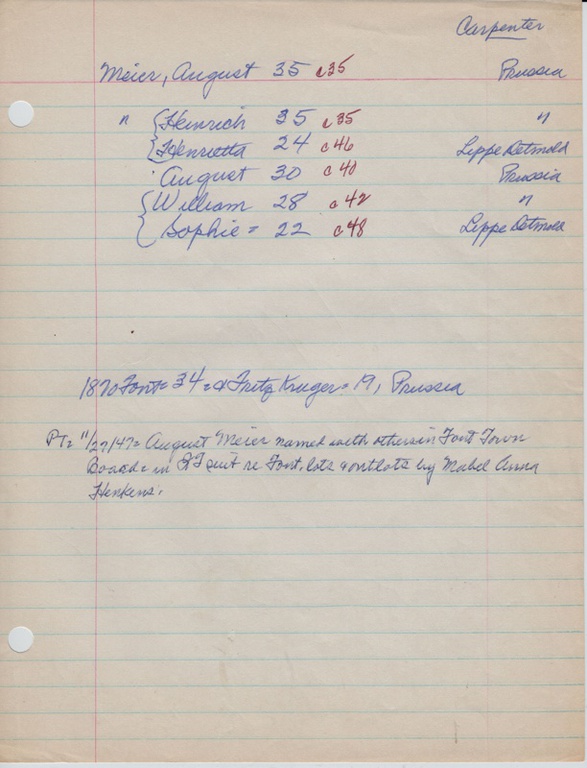 Carpenter
Meier, August 35 c35 Prussia
" Heinrich 35 c35 "
Henrietta 24 c46 Lippe Detmold
August 30 c40 Prussia
William 28 c42 "
Sophie = 22 c48 Lippe Detmold
1870 Font = 34 = Fritz Kruger = 19, Prussia
PT = 11/27/47 = August Meier named with others in Font Town
Board = in suit re Font. lots & outlots by Mabel Anna
Henkens.